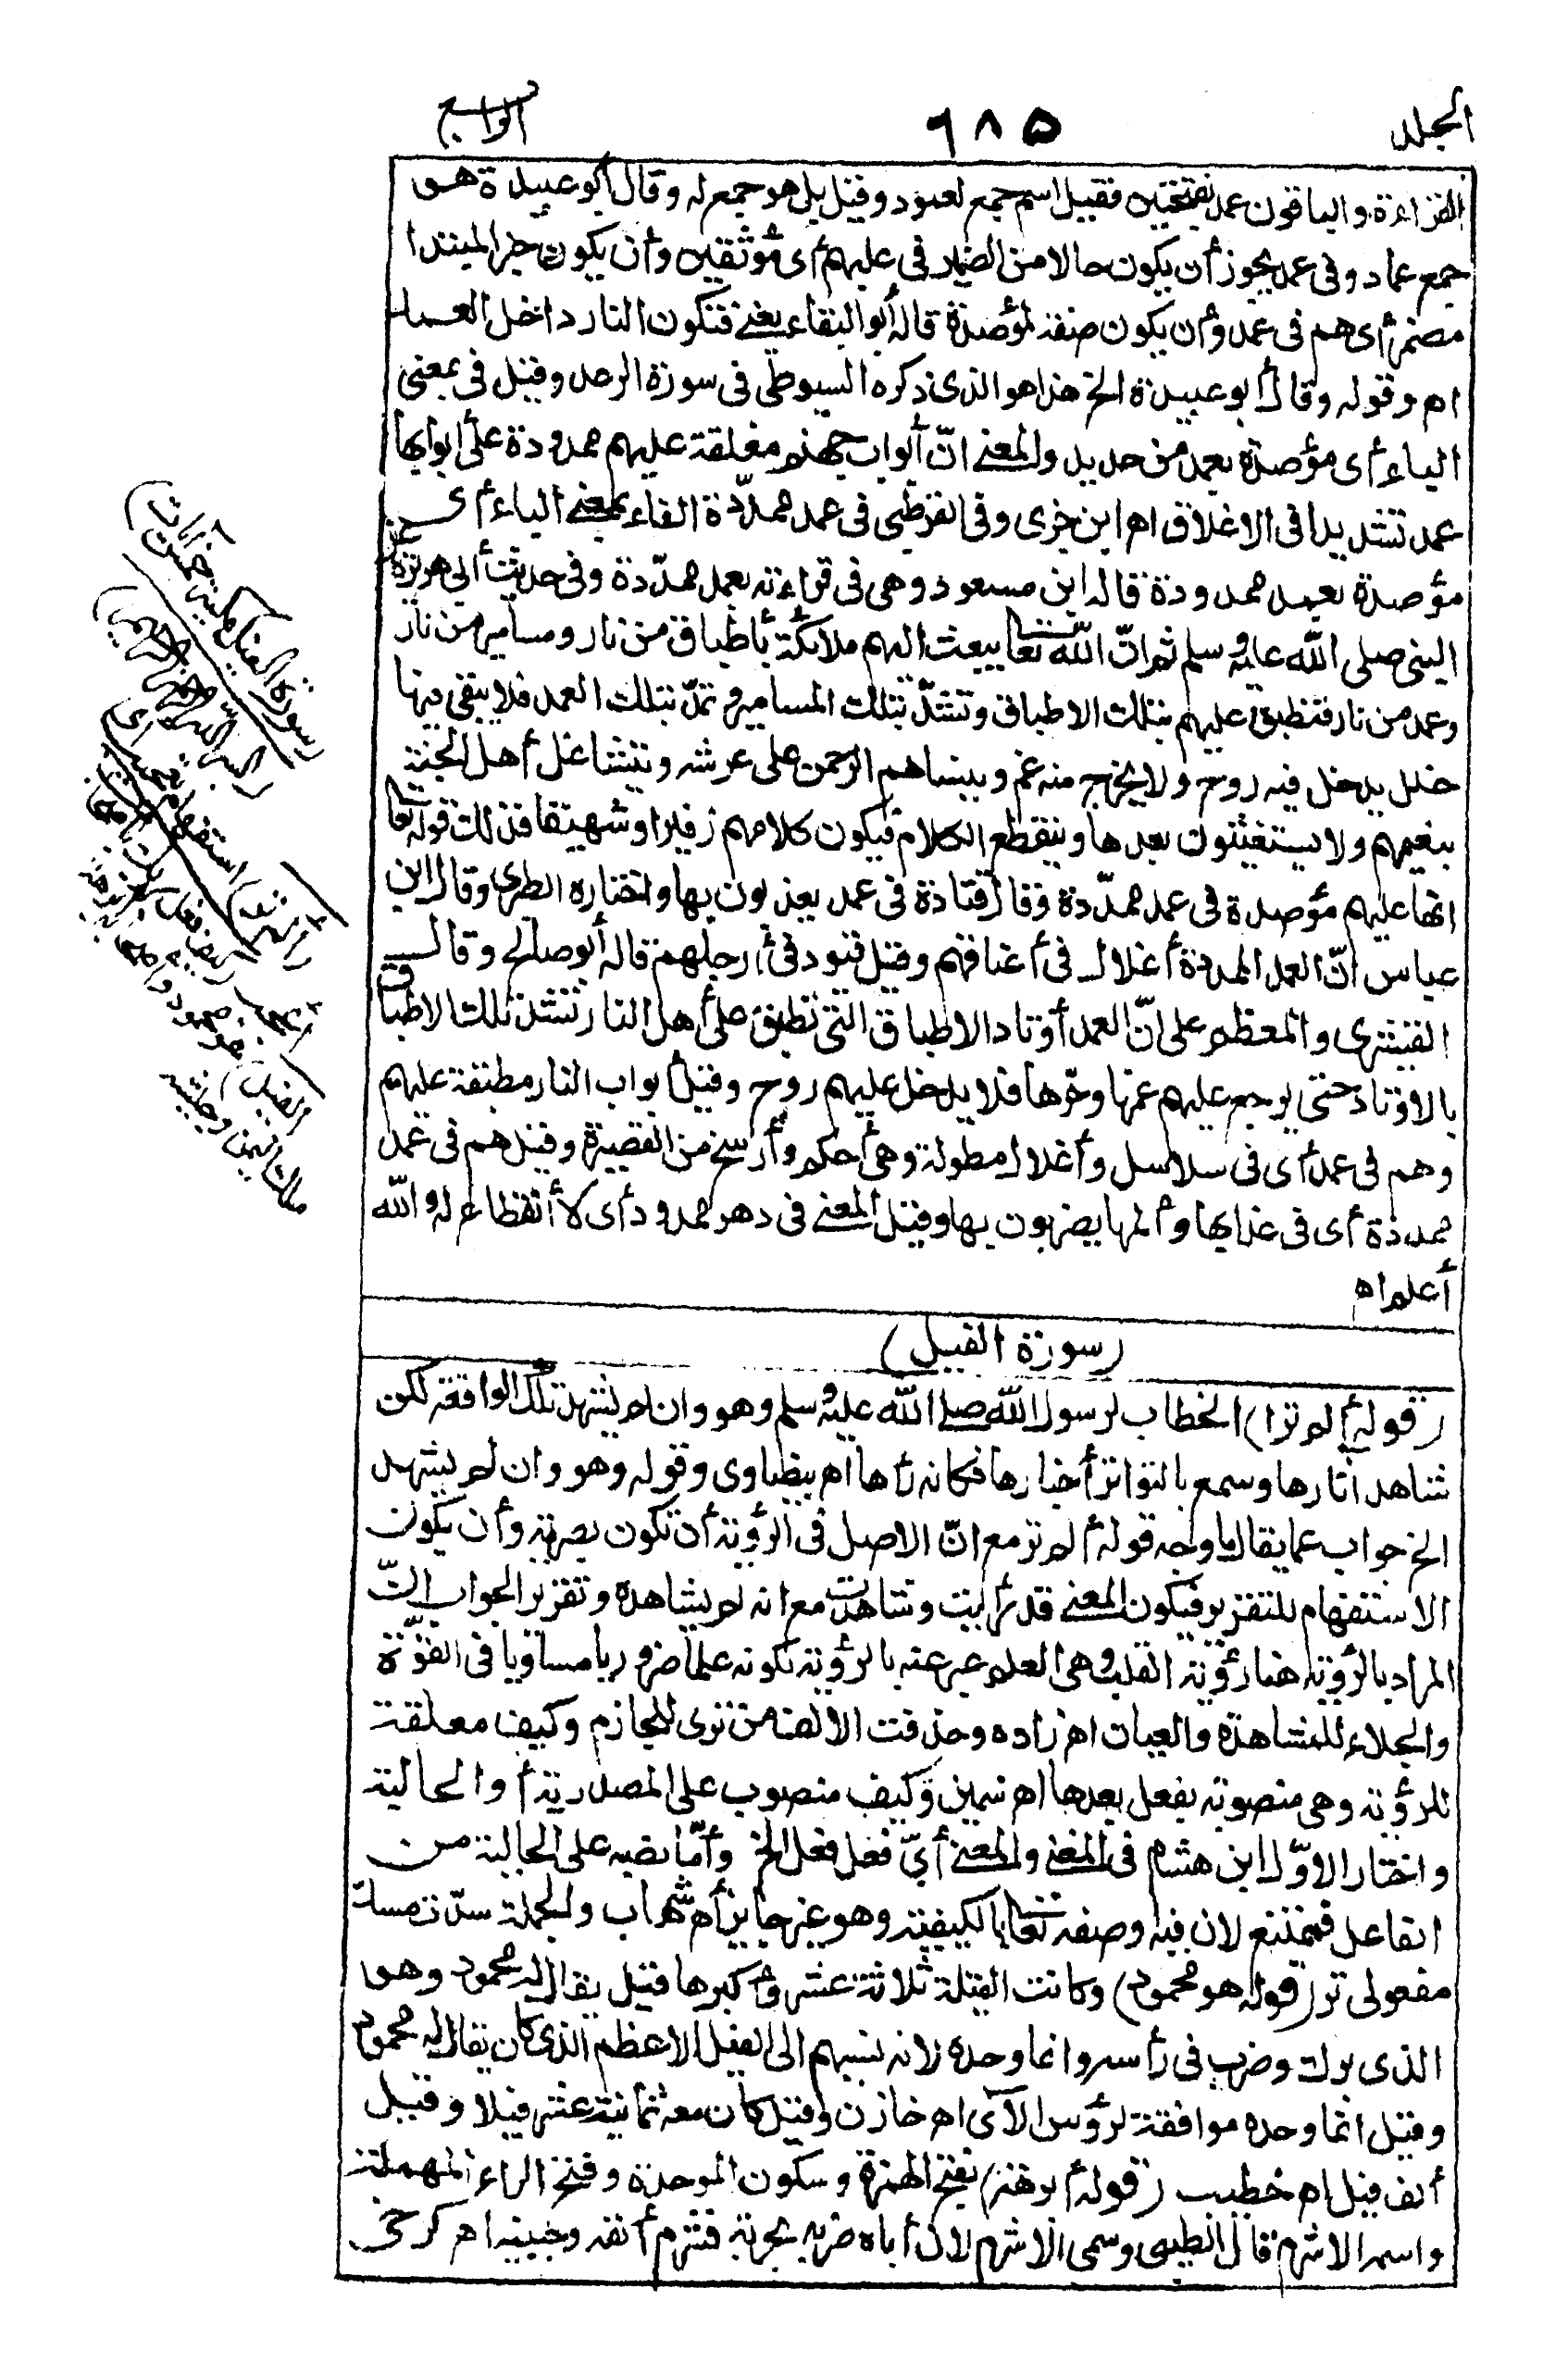 الجلد ٦٨٥ الرابع
القراءة والباقون عمد بفتحتين فقيل اسم جمع لعمود وقيل بل هو جمع له وقال أبو عبيدة هو
جمع عماد وفى عمد يجوز أن يكون حالا من الضمير فى عليهم أى موثقين وأن يكون خبر المبتدا
مضمر أى هم فى عمد وأن يكون صفة لمؤصدة قاله أبو البقاء يعنى فتكون النار داخل العمد
اه وقوله وقال أبو عبيدة الخ هذا هو الذى ذكره السيوطى فى سورة الرعد وقيل فى بمعنى
الباء أى مؤصدة بعمد من حديد والمعنى انّ أبواب جهنم مغلقة عليهم ممدودة على أبوابها
عمد تشديدا فى الاغلاق اه ابن جزى وفى القرطبى فى عمد ممدّدة الفاء بمعنى الباء أى
مؤصدة بعمد ممدودة قاله ابن مسعود وهى فى قراءته بعمد ممدّدة وفى حديث أبى هريرة عن
النبى صلى الله عليه وسلم ثم انّ الله تعالى يبعث اليهم ملائكة بأطباق من نار ومسامير من نار
وعمد من نار فتطبق عليهم بتلك الاطباق وتشدّ بتلك المسامير وتمدّ بتلك العمد فلا يبقى فيها
خلل يدخل فيه روح ولا يخرج منه غم وينساهم الرحمن على عرشه ويتشاغل أهل الجنة
بنعيمهم ولا يستغيثون بعدها وينقطع الكلام فيكون كلامهم زفيرا وشهيقا فذلك قوله تعالى
انها عليهم مؤصدة فى عمد ممدّدة وقال قتادة فى عمد يعذبون بها واختاره الطبرى وقال ابن
عباس انّ العمد الممددة أغلال فى أعناقهم وقيل قيود فى أرجلهم قاله أبو صالح وقال
القشيرى والمعظم على انّ العمد أوتاد الاطباق التى تطبق على أهل النار تشد تلك الاطباق
بالاوتاد حتى يرجع عليهم غمها وحرّها فلا يدخل عليهم روح وقيل أبواب النار مطبقة عليهم
وهم فى عمد أى فى سلاسل وأغلال مطولة وهى أحكم وأرسخ من القصيرة وقيل هم فى عمد
ممددة أى فى عذابها وألمها يضربون بها وقيل المعنى فى دهر ممدود أى لا انقطاع له والله
أعلم اه
(سورة الفيل)
(قوله ألم تر) الخطاب لرسول الله صلى الله عليه وسلم وهو وان لم يشهد تلك الواقعة لكن
شاهد آثارها وسمع بالتواتر أخبارها فكانه رآها اه بيضاوى وقوله وهو وان لم يشهد
الخ جواب عما يقال ما وجه قوله ألم تر مع انّ الاصل فى الرؤية أن تكون بصرية وأن يكون
الاستفهام للتقرير فيكون المعنى قد رأيت وشاهدت مع انه لم يشاهده وتقرير الجواب انّ
المراد بالرؤية هنا رؤية القلب وهى العلم عبر عنه بالرؤية لكونه علما ضروريا مساويا فى القوّة
والجلاء للمشاهدة والعيان اه زاده وحذفت الالف من ترى للجازم وكيف معلقة
للرؤية وهى منصوبة بفعل بعدها اه سمين وكيف منصوب على المصدرية أو الحالية
واختار الاوّل ابن هشام فى المغنى والمعنى أىّ فعل فعل الخ وأمّا نصبه على الحالية من
الفاعل فممتنع لان فيه وصفه تعالى بالكيفية وهو غير جايز اه شهاب والجملة سدّت مسدّ
مفعولى تر (قوله هو محمود) وكانت الفيلة ثلاثة عشر وأكبرها فيل يقال له محمود وهو
الذى برك وضرب فى رأسه وانما وحده لانه نسبهم الى الفيل الاعظم الذى كان يقال له محمود
وقيل انما وحده موافقة لرؤس الآى اه خازن وقيل كان معه ثمانية عشر فيلا وقيل
ألف فيل اه خطيب (قوله أبرهة) بفتح الهمزة وسكون الموحدة وفتح الراء المهملة
واسمه الاشرم قال الطيبى وسمى الاشرم لان أباه ضربه بحربة فشرم أنفه وجبينه اه كرخى
(سورة الفيل مكية خمس آيات)
(بسم الله الرحمن الرحيم)
(ألم تر) استفهام تعجيب أى
الفيل)